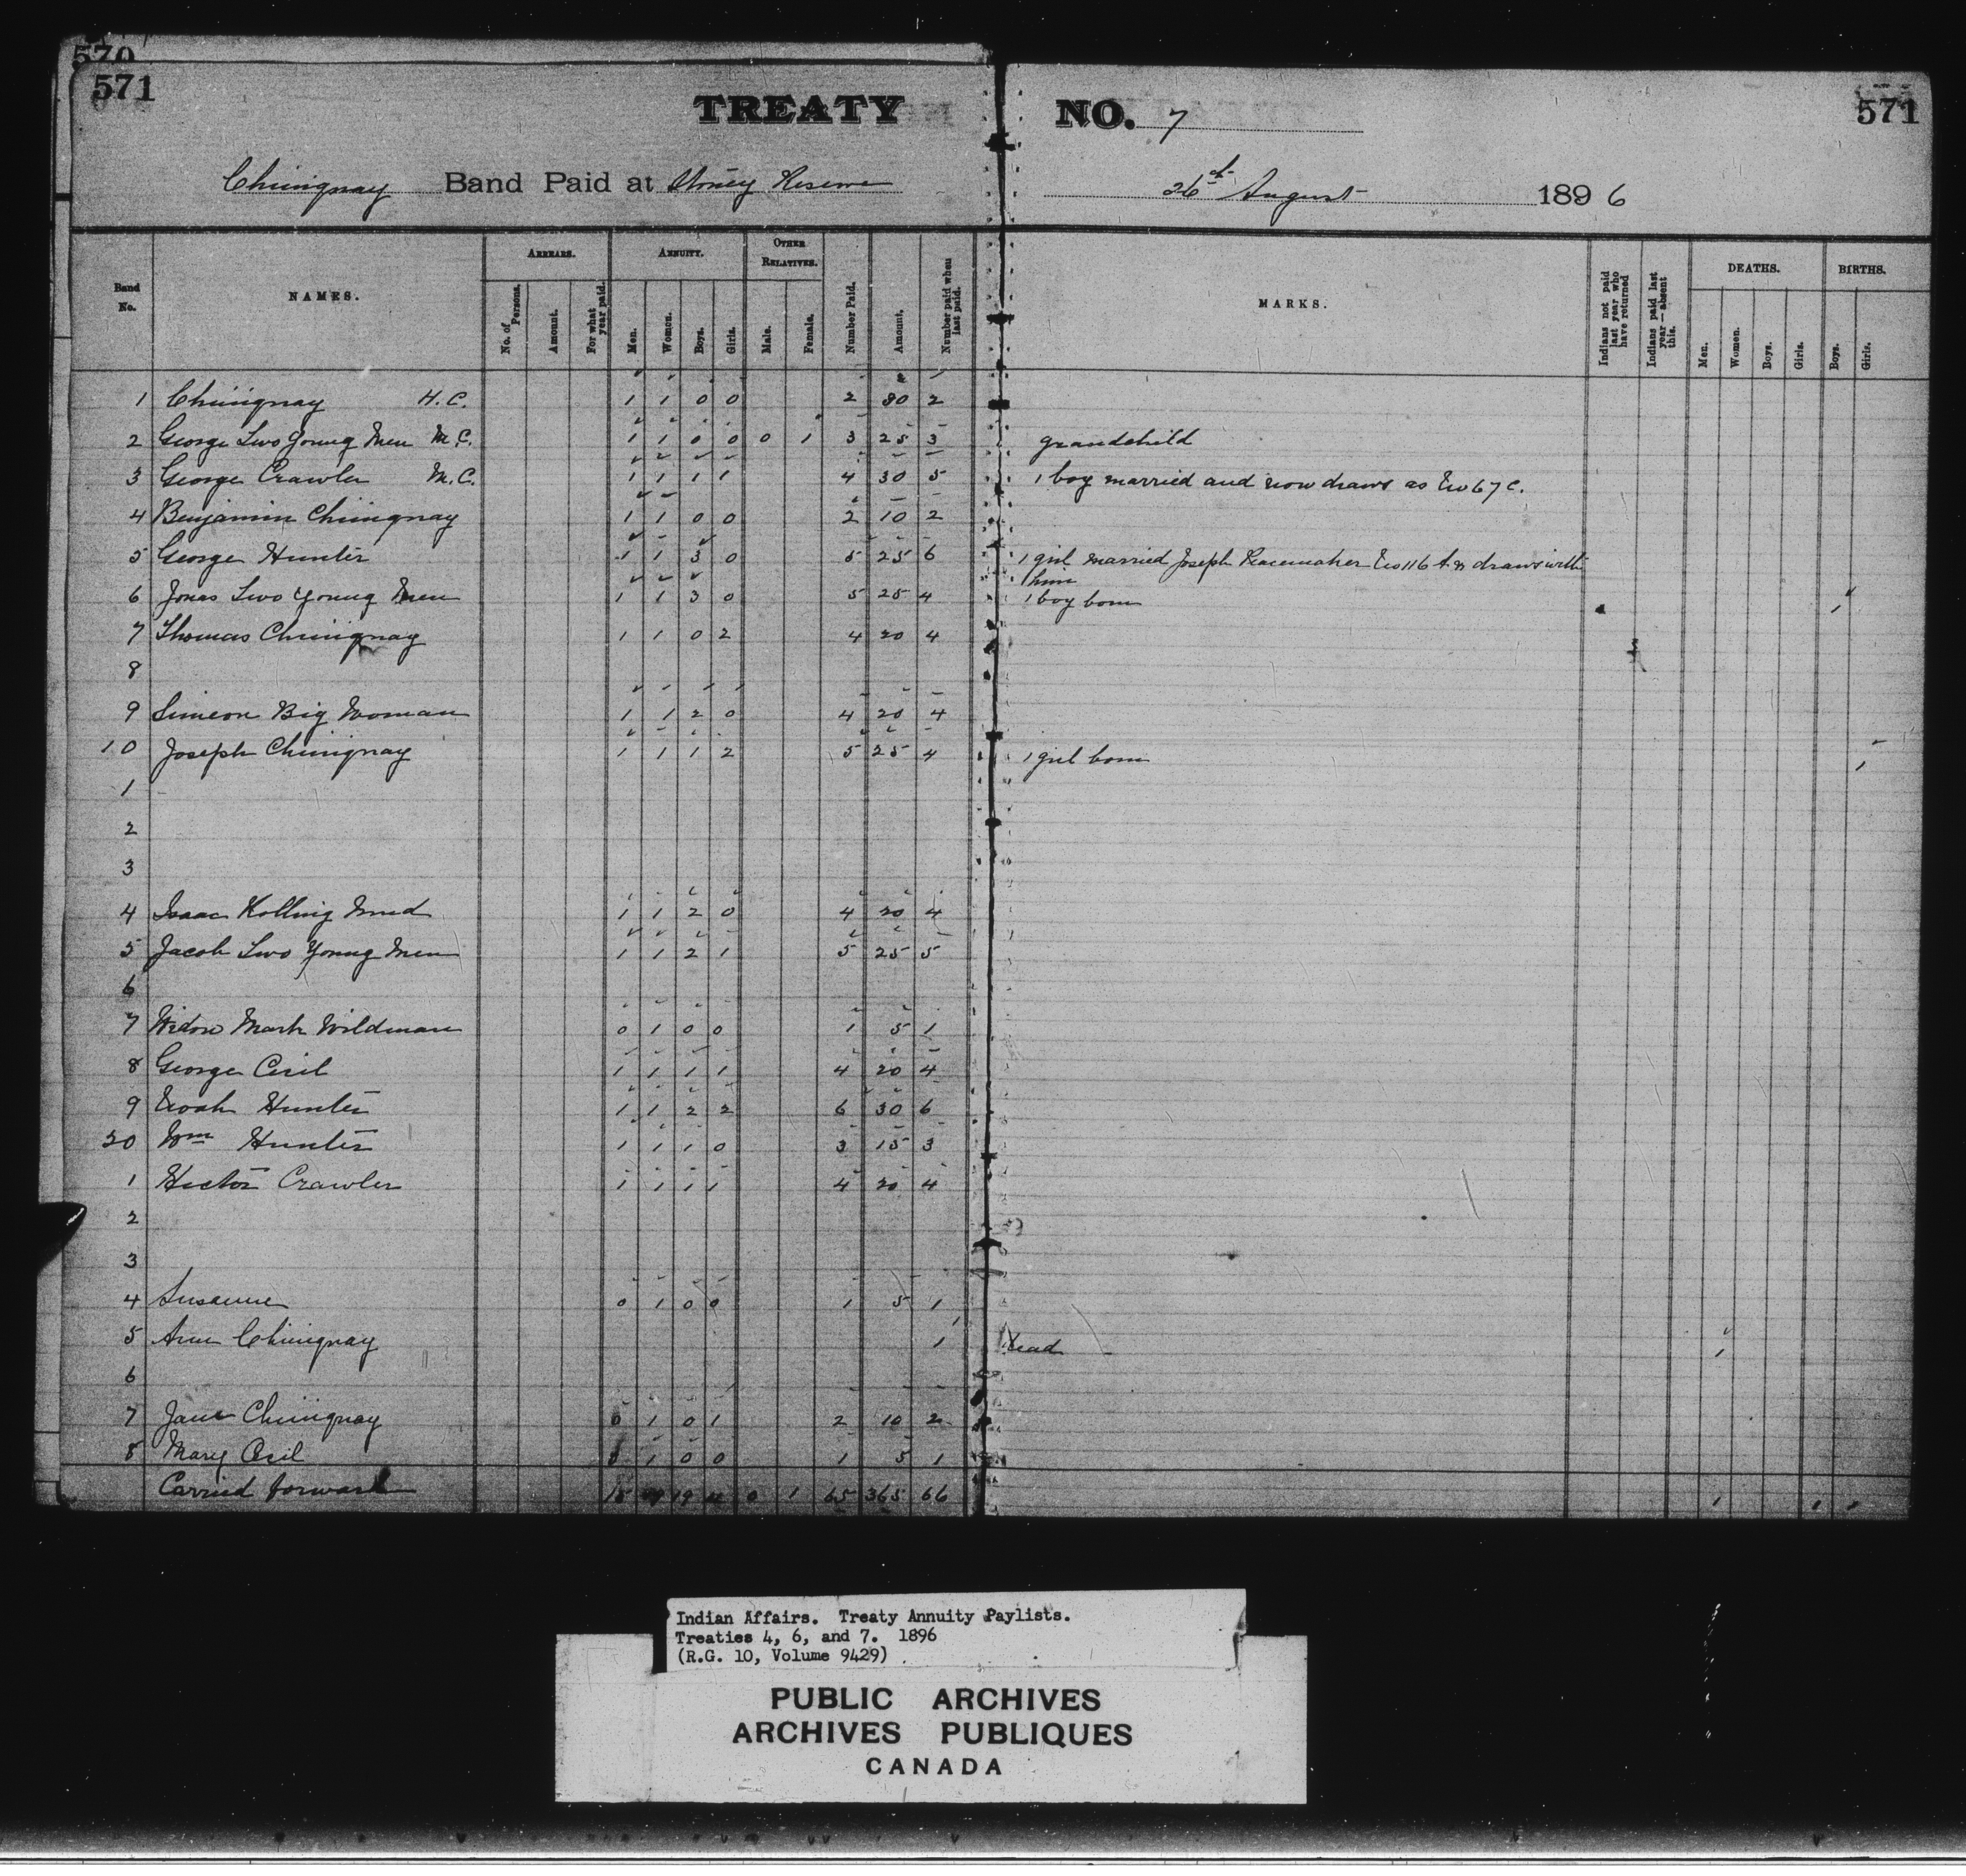 570
571
TREATY NO. 7
571
Chiniquay Band Paid at Stoney Reserve
26th August 1896
Band No.
NAMES.
ARREARS.
No. of Persons.
Amount.
For what year paid.
ANNUITY.
Men.
Women.
Boys.
Girls.
OTHER RELATIVES.
Male.
Female.
Number Paid.
Amount.
Number paid when last paid.
MARKS.
Indians not paid last year who have returned
Indians paid last year — absent this.
DEATHS.
Men.
Women.
Boys.
Girls.
BIRTHS.
Boys.
Girls.
1 Chiniquay H.C. 1 1 0 0 2 30 2
2 George Two Young Men M.C. 1 1 0 0 0 1 3 25 3 grandchild
3 George Crawler M.C. 1 1 1 1 4 30 5 1 boy married and now draws as No 67 C.
4 Benjamin Chiniquay 1 1 0 0 2 10 2
5 George Hunter 1 1 3 0 5 25 6 1 girl married Joseph Peacemaker No 116 draws with
him
6 Jonas Two Young Men 1 1 3 0 5 25 4 1 boy born 1
7 Thomas Chiniquay 1 1 0 2 4 20 4
8
9 Simeon Big Woman 1 1 2 0 4 20 4
10 Joseph Chiniquay 1 1 1 2 5 25 4 1 girl born 1
1
2
3
4 Isaac Rolling Mud 1 1 2 0 4 20 4
5 Jacob Two Young Men 1 1 2 1 5 25 5
6
7 Widow Mark Wildman 0 1 0 0 1 5 1
8 George Cecil 1 1 1 1 4 20 4
9 Noah Hunter 1 1 2 2 6 30 6
20 Wm Hunter 1 1 1 0 3 15 3
1 Hector Crawler 1 1 1 1 4 20 4
2
3
4 Susanne 0 1 0 0 1 5 1
5 Ann Chiniquay 1 Dead 1
6
7 Jane Chiniquay 0 1 0 1 2 10 2
8 Mary Cecil 0 1 0 0 1 5 1
Carried forward 15 19 19 11 0 1 65 365 66 1 1 1
Indian Affairs. Treaty Annuity Paylists.
Treaties 4, 6, and 7. 1896
(R.G. 10, Volume 9429)
PUBLIC ARCHIVES
ARCHIVES PUBLIQUES
CANADA